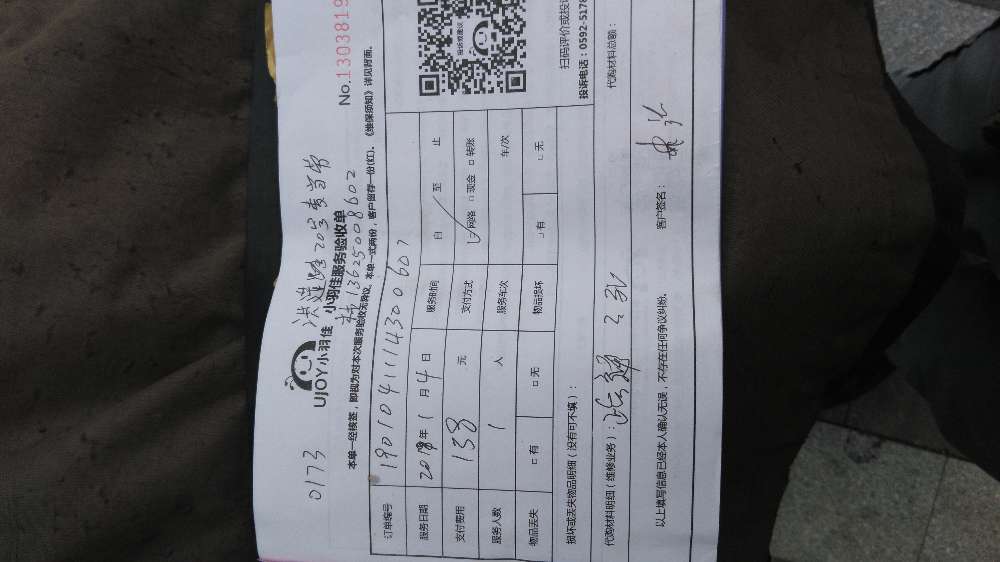 0173
UJOY小羽佳 小羽佳服务验收单
韩13625008602
No.1303819
本单一经核签，即视为对本次服务验收无异议。本单一式两份，客户留存一份(红)。《维保须知》详见背面。
订单编号 19010411114300607
服务日期 2019年1月4日 服务时间 自 至 止
支付费用 138 元 支付方式 ☑网络 □现金 □转账
服务人数 1 人 服务车次 车/次
物品丢失 □有 □无 物品损坏 □有 □无
投诉或建议
扫码评价或投诉
投诉电话：0592-5178
损坏或丢失物品明细（没有可不填）：
代购材料明细（维修业务）：
代购材料总额：
以上填写信息已经本人确认无误，不存在任何争议纠纷。
客户签名：